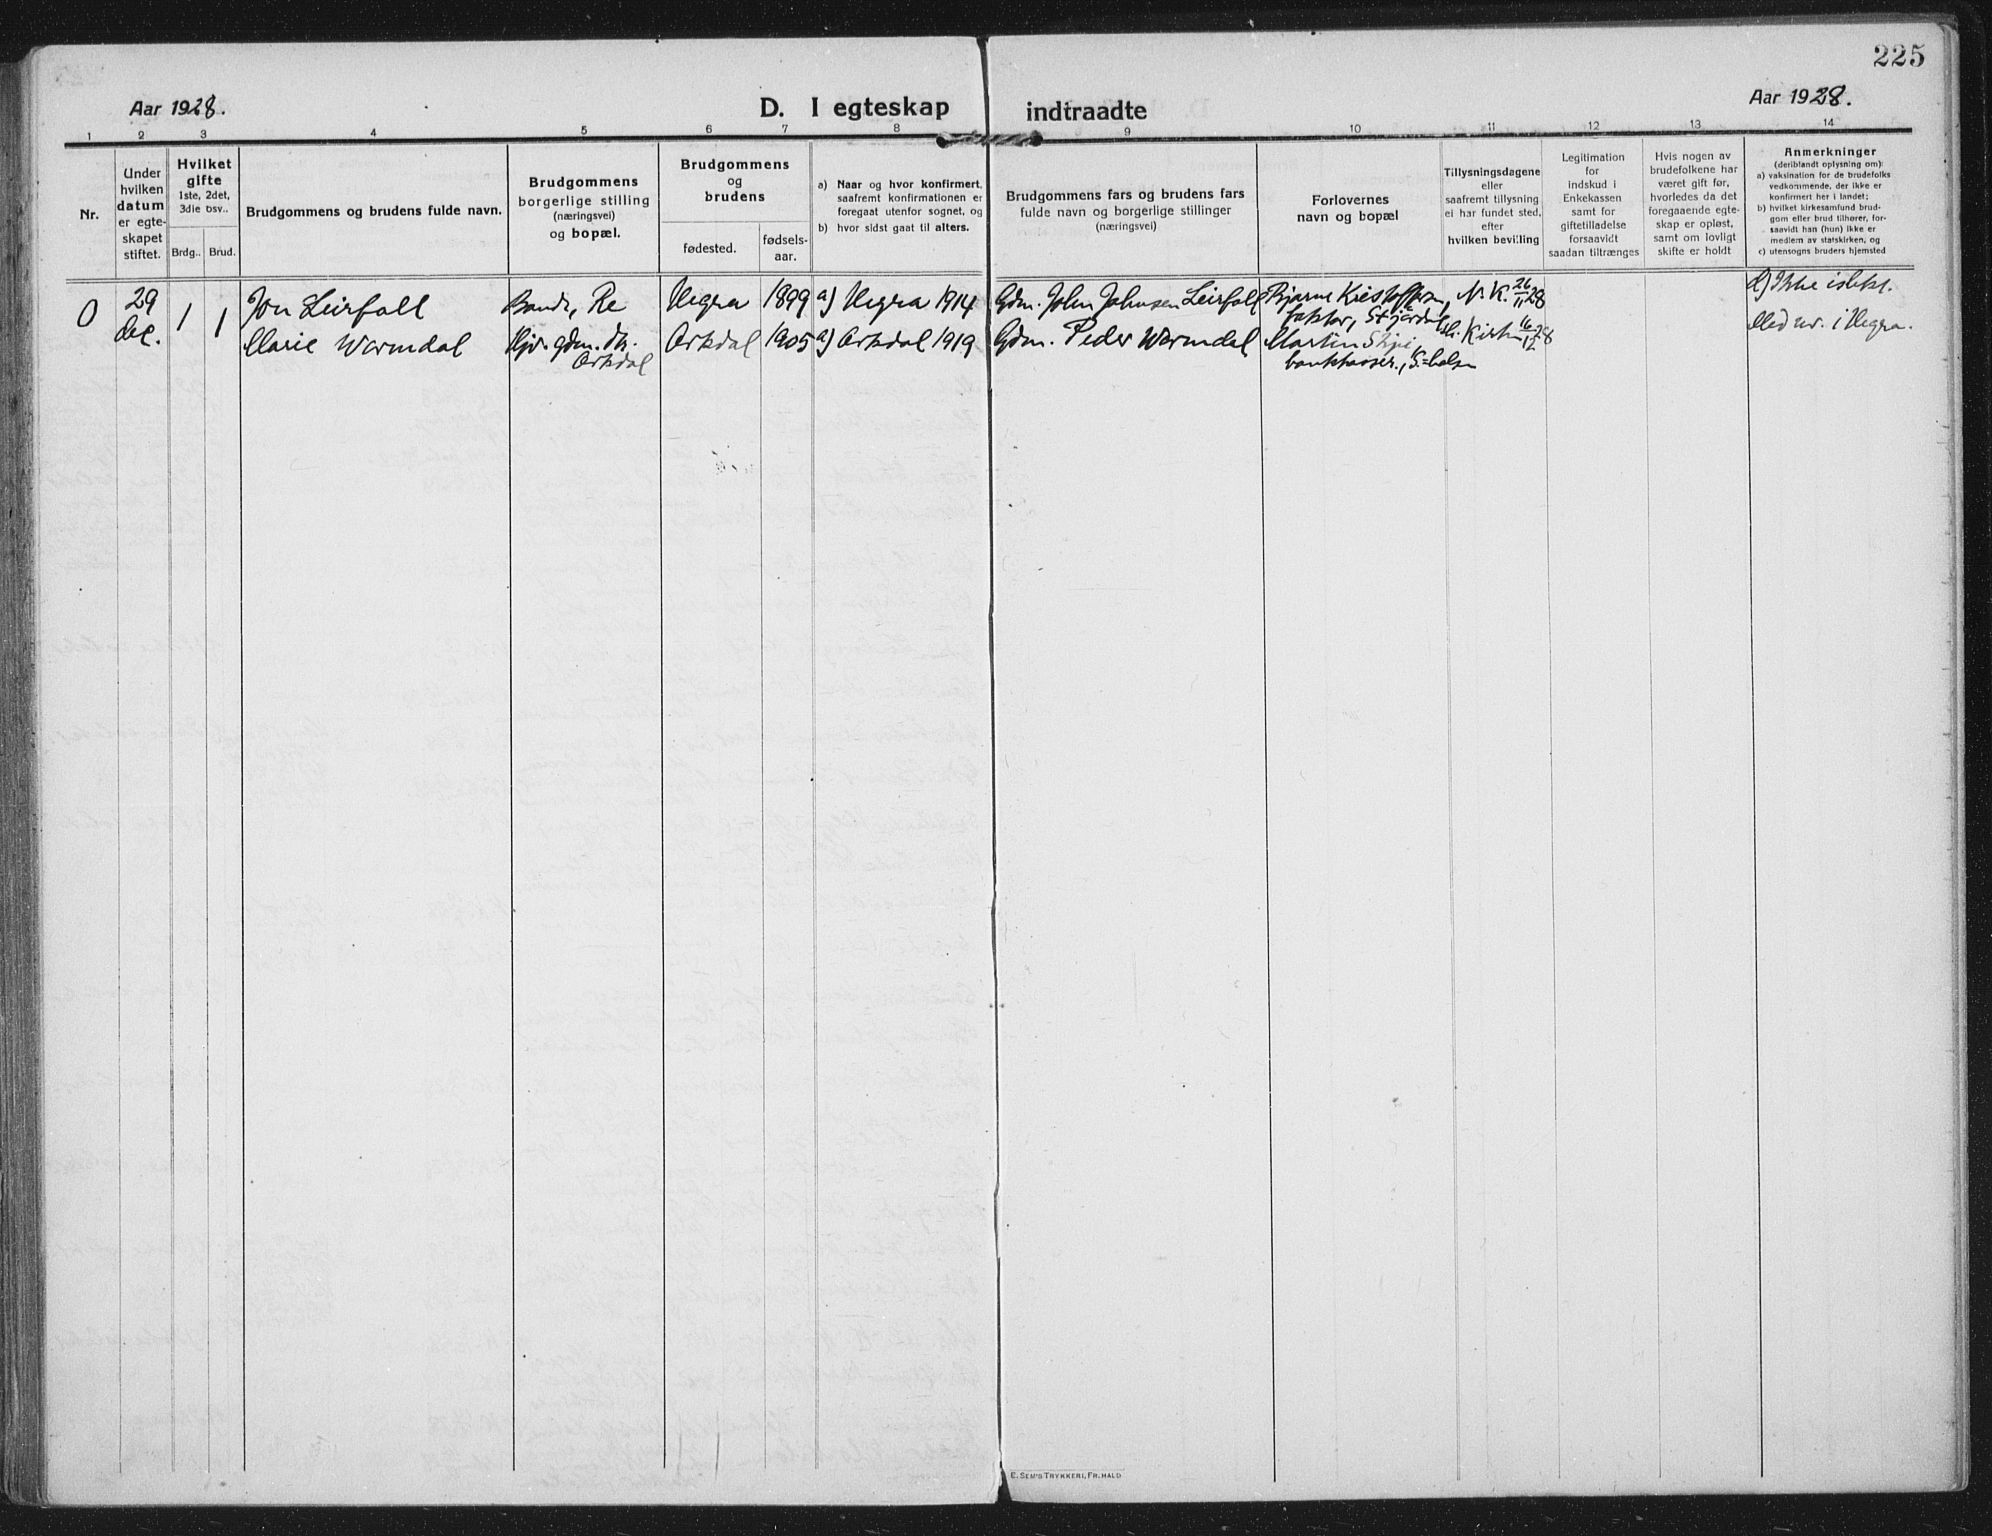 225
Aar 1928.
D. I egteskap indtraadte
Aar 1928.
1 2 3 4 5 6 7 8 9 10 11 12 13 14
Nr.
Under
hvilken
datum
er egte-
skapet
stiftet.
Hvilket
gifte
1ste, 2det,
3die osv..
Brdg.. Brud.
Brudgommens og brudens fulde navn.
Brudgommens
borgerlige stilling
(næringsvei)
og bopæl.
Brudgommens
og
brudens
fødested.
fødsels-
aar.
a) Naar og hvor konfirmert,
saafremt konfirmationen er
foregaat utenfor sognet, og
b) hvor sidst gaat til alters.
Brudgommens fars og brudens fars
fulde navn og borgerlige stillinger
(næringsvei)
Forlovernes
navn og bopæl
Tillysningsdagene
eller
saafremt tillysning
ei har fundet sted,
efter
hvilken bevilling
Legitimation
for
indskud i
Enkekassen
samt for
giftetilladelse
forsaavidt
saadan tiltrænges
Hvis nogen av
brudefolkene har
været gift før,
hvorledes da det
foregaaende egte-
skap er opløst,
samt om lovligt
skifte er holdt
Anmerkninger
(deriblandt oplysning om):
a) vaksination for de brudefolks
vedkommende, der ikke er
konfirmert her i landet;
b) hvilket kirkesamfund brud-
gom eller brud tilhører, for-
saavidt han (hun) ikke er
medlem av statskirken, og
c) utensogns bruders hjemsted
0 29 1 1 Jon Leirfall Bonde, Re Hegra 1899 a) Hegra 1914 Gdm. John Johnsen Leirfall Bjarne Kristoffersen, N. K. 26/11 28
dec. Marie Warmdal Hjv. gdm. dtr. Orkdal 1905 a) Orkdal 1919 Gdm. Peder Warmdal Martin Skjei
Orkdal
Kirken 16/12 28
Ikke
Med nr. i Hegra.
E. SEM'S TRYKKERI, FR.HALD